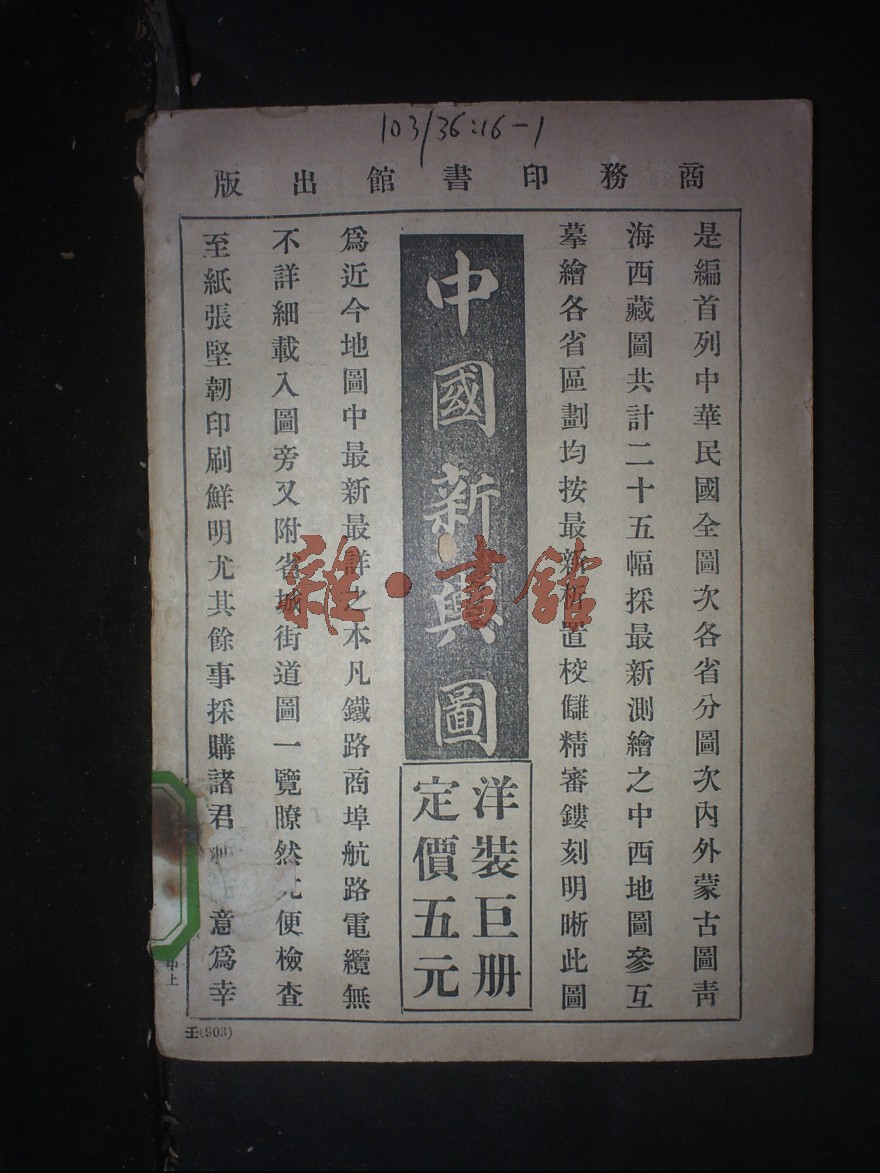 103/36:16-1
商務印書館出版
是編首列中華民國全圖次各省分圖次內外蒙古圖靑
海西藏圖共計二十五幅採最新測繪之中西地圖參互
摹繪各省區劃均按最新析置校讎精審鏤刻明晰此圖
中國新輿圖
洋裝巨册
定價五元
爲近今地圖中最新最詳之本凡鐵路商埠航路電纜無
不詳細載入圖旁又附省城街道圖一覽瞭然尤便檢查
至紙張堅韌印刷鮮明尤其餘事採購諸君意爲幸
上
壬(903)
雜·書館